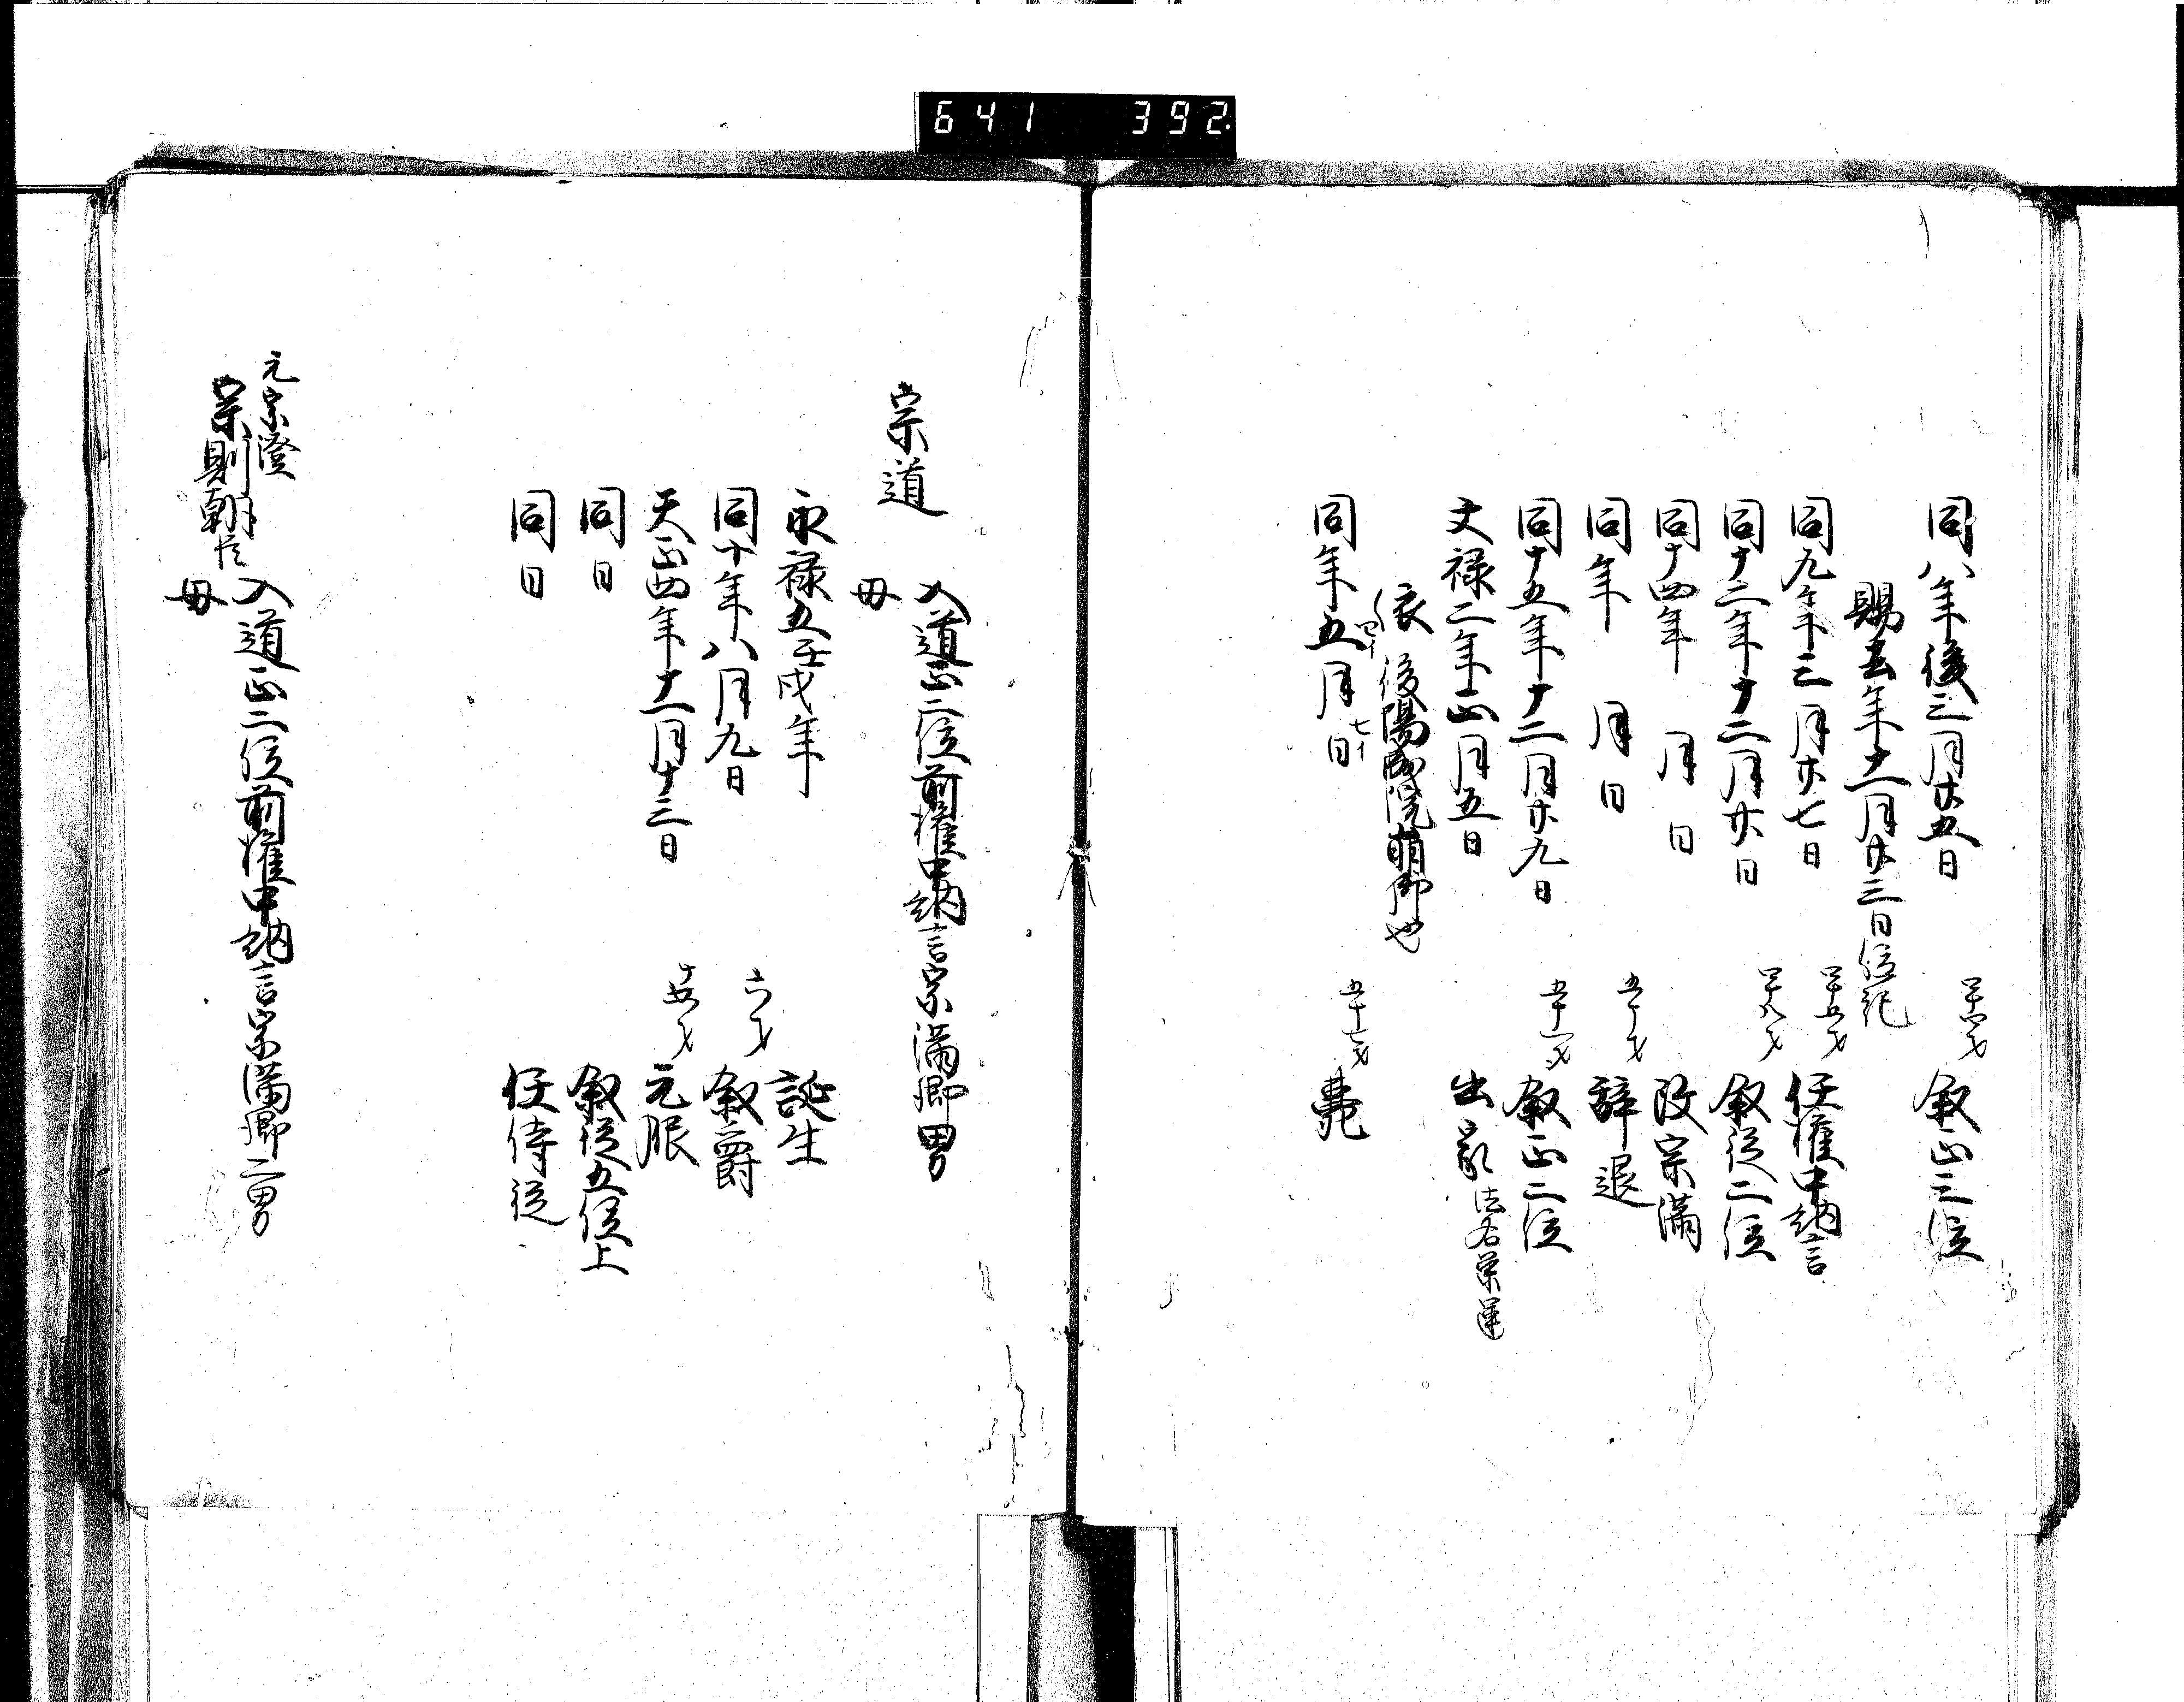 641 392.
同八年後三月廿五日 四十四才 叙正三位
賜去年十一月廿三日位記
同九年三月廿七日 四十五才 任権中納言
同十二年十二月廿日 四十八才 叙従二位
同十四年 月 日 改宗満
同年 月 日 五十才 辞退
同十五年十二月廿九日 五十一才 叙正二位
文禄二年正月五日 出家 法名栄運
依 後陽成院崩御也
同年五月 日 五十七才 薨
七イ
宗道
入道正二位前権中納言宗満卿男
母
永禄五壬戌年 誕生
同十年八月九日 六才 叙爵
天正四年十一月十三日 十五才 元服
同日 叙従五位上
同日 任侍従
元宗澄
宗則朝臣
入道正二位前権中納言宗満卿二男
母